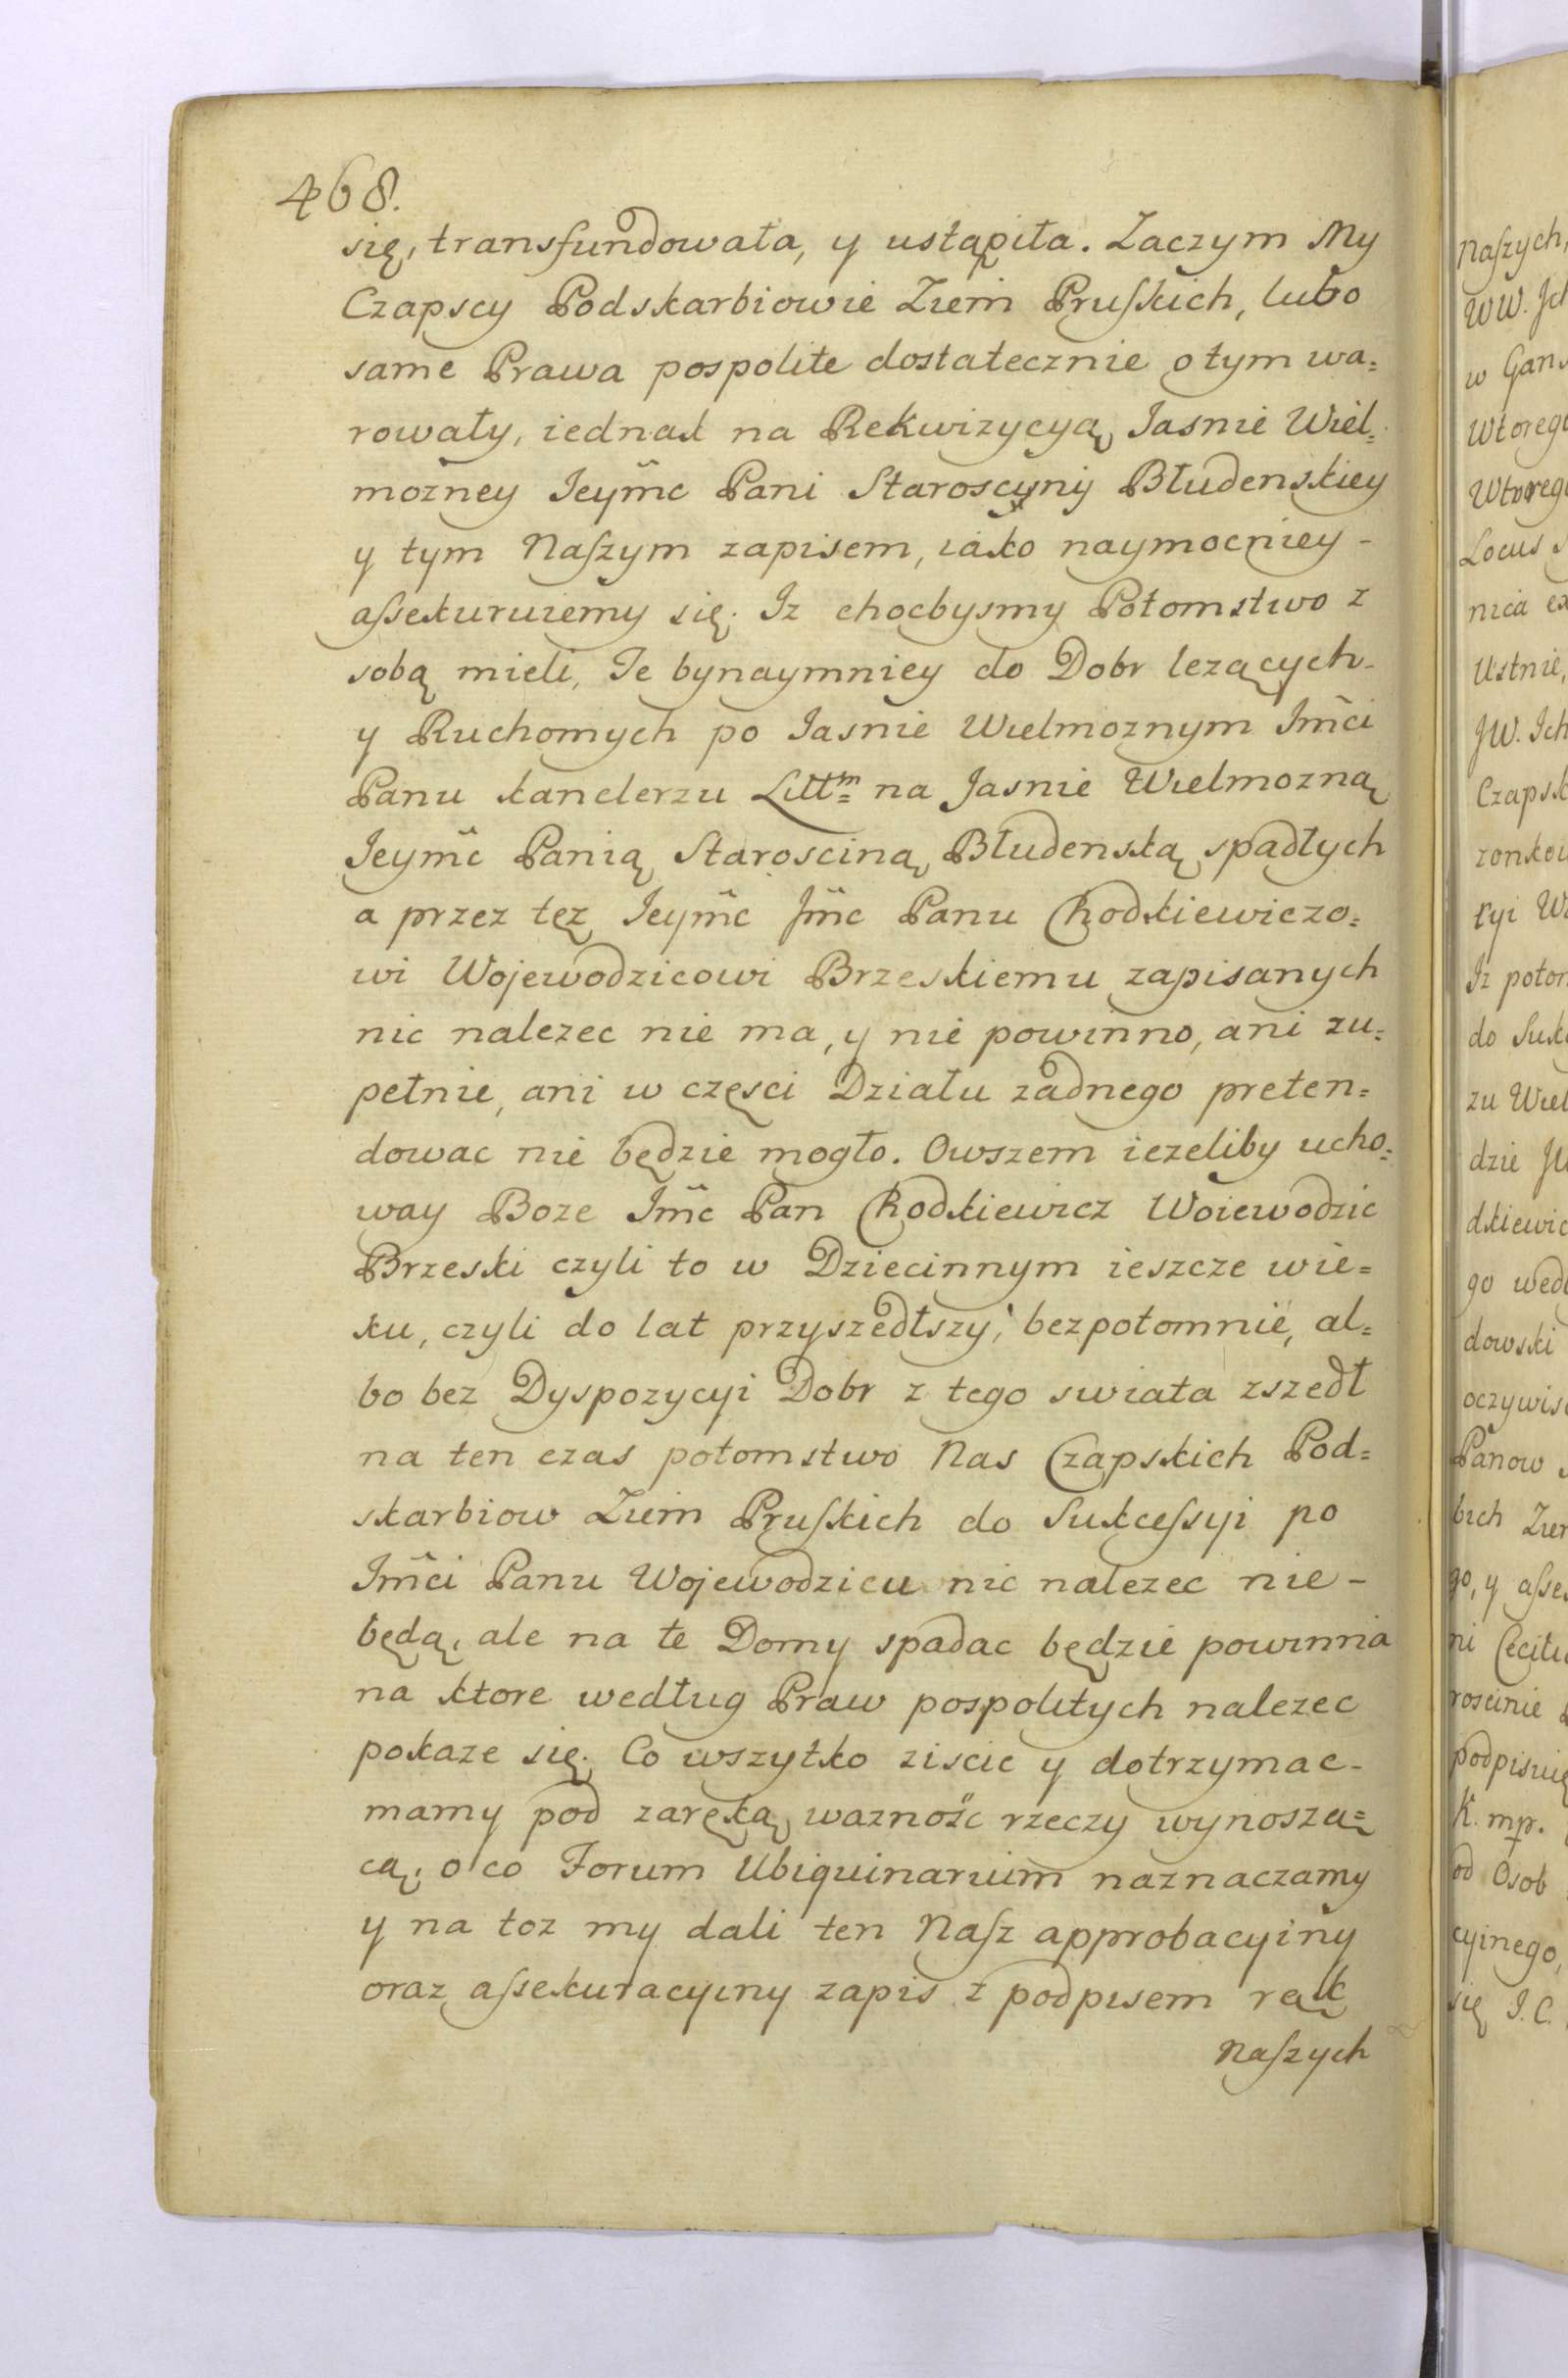 468.
się, transfundowała, y ustąpiła. Zaczym My
Czapscy Podskarbiowie Ziem Pruſkich, lubo
same Prawa pospolite dostatecznie o tym wa=
rowały, iednak na Rekwizycyą Iasnie Wiel=
mozney Ieym̃c Pani Staroscyny Błudenskiey
y tym Naſzym zapisem, iako naymocniey -
aſsekuruiemy się. Iz chocbysmy Potomstwo z
sobą mieli, Te bynaymniey do Dobr lezących -
y Ruchomych po Iasnie Wielmoznym Im̃ci
Panu kanclerzu Littm= na Jasnie Wielmozną
Ieym̃c Panią Starościną Błudenską spadłych
a przez tęz Ieym̃c Jm̃c Panu Chodkiewiczo=
wi Wojewodzicowi Brzeskiemu zapisanych
nic nalezec nie ma, y nie powinno, ani zu=
pełnie, ani w częsci Działu zadnego preten=
dowac nie będzie mogło. Owszem iezeliby ucho=
way Boze Im̃c Pan Chodkiewicz Woiewodzic
Brzeski czyli to w Dziecinnym ieszcze wie=
ku, czyli do lat przyszedłszy, bezpotomnie, al=
bo bez Dyspozycyi Dobr z tego swiata zszedł
na ten czas potomstwo Nas Czapskich Pod=
skarbiow Ziem Pruſkich do Sukceſsyi po
Im̃ci Panu Wojewodzicu nic nalezec nie -
będą, ale na te Domy spadac będzie powinna
na ktore według Praw pospolitych nalezec
pokaze się. Co wszytko ziscic y dotrzymac -
mamy pod zaręką waznośc rzeczy wynoszą=
cą, o co Forum Ubiquinarium naznaczamy
y na toz my dali ten Naſz approbacyiny
oraz aſsekuracyiny zapis z podpisem rąk
Naſzych
Naſzych,
WW. Ich
w Gans
Wtorego
Wtorego
Locus S
nica ex
Ustnie,
JW. Ich
Czapsk
zonkow
ryi W
Iz potom
do Sukc
zu Wiel
dzie JW
dkiewic
go wedł
dowski
oczywis
Panow
bich Ziem
go, y aſse
ni Cecili
roscinie
podpisuię
K. mp.
od Osob
cyinego,
się I. C.